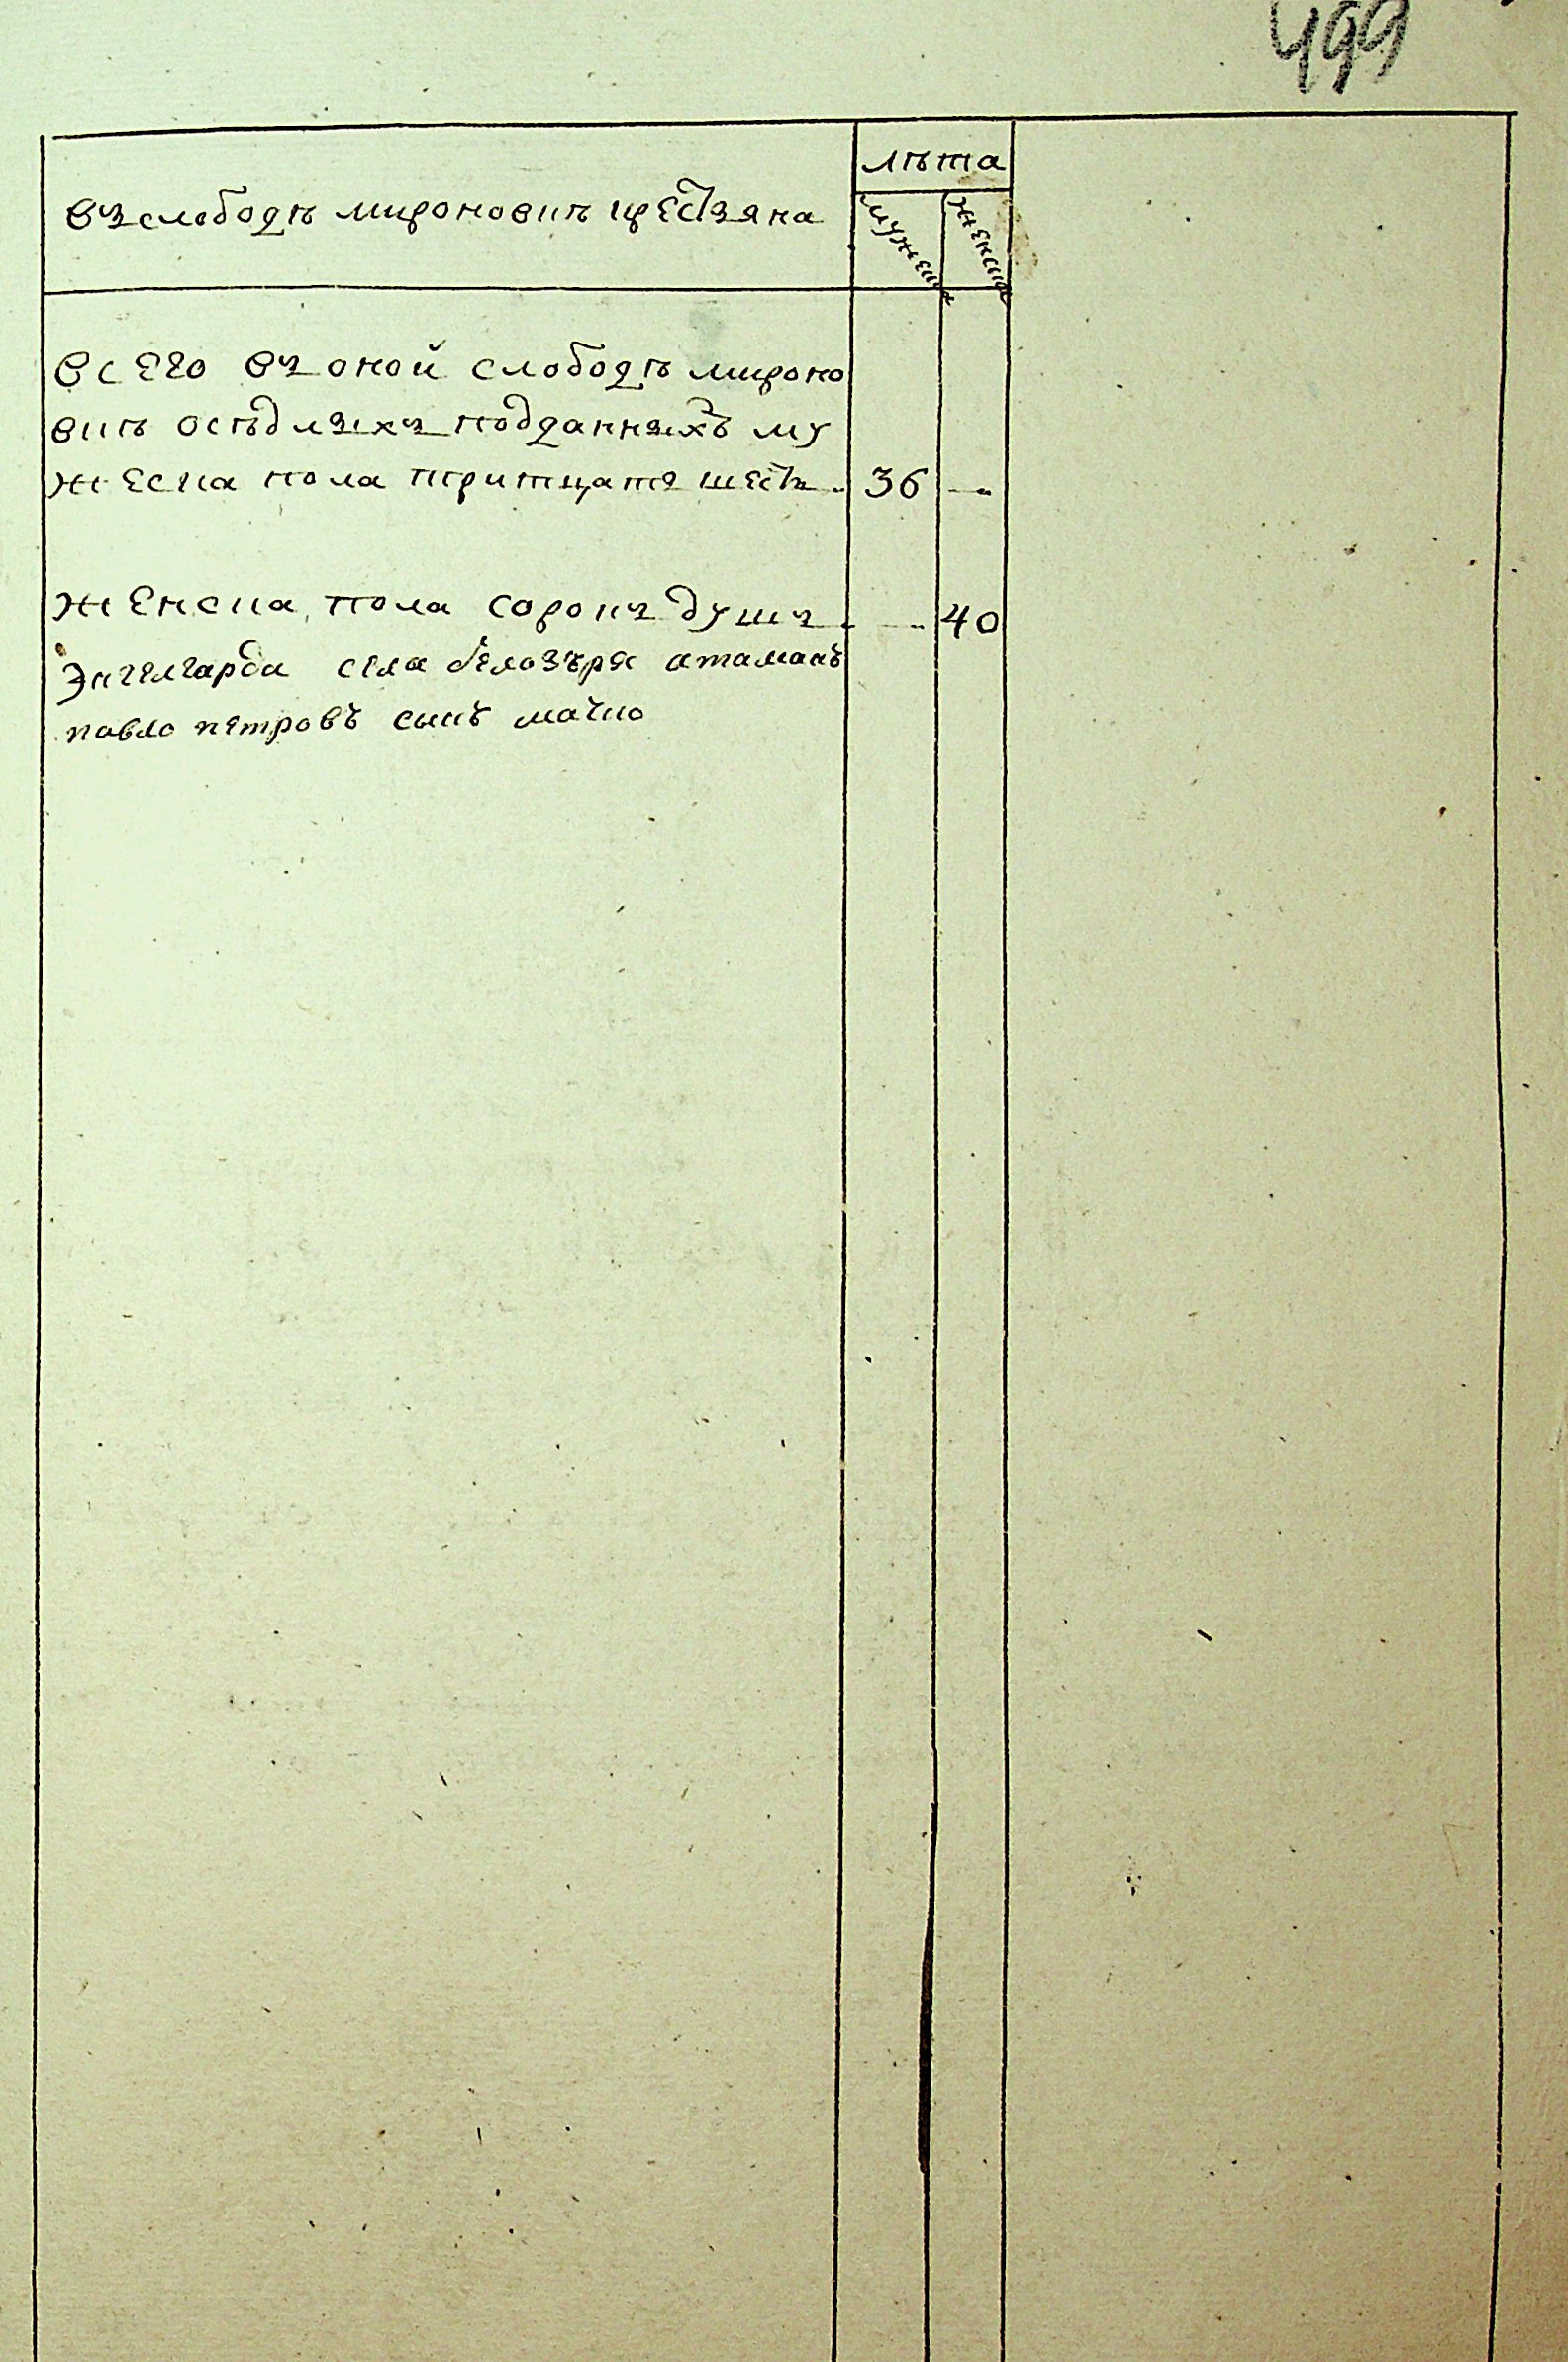 499
лѣта
въ слободѣ мироновкѣ крестьяна
мужеска
женска
всего въ оной слободѣ мироно
вкѣ осѣдлыхъ подданныхъ му
жеска пола тритцать шесть 36 —
женска пола сорокъ душъ — 40
Энгелгарда села белозѣря атаманъ
павло петровъ сынъ мачко